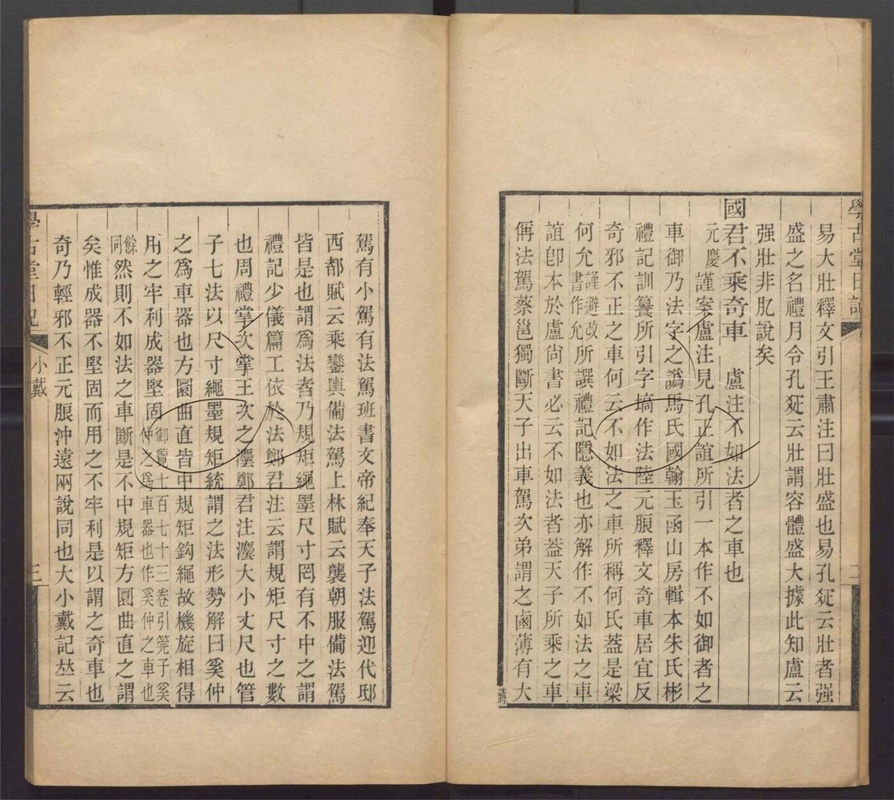 學古堂日記
易大壯釋文引王肅注曰壯盛也易孔疏云壯者强
盛之名禮月令孔疏云壯謂容體盛大據此知盧云
强壯非肊說矣
國君不乘奇車 盧注不如法者之車也
元慶謹案盧注見孔正誼所引一本作不如御者之
車御乃法字之譌馬氏國翰玉函山房輯本朱氏彬
禮記訓纂所引字塙作法陸元朖釋文奇車居宜反
奇邪不正之車何云不如法之車所稱何氏葢是梁
何允謹避改書作允所譔禮記隱義也亦解作不如法之車
誼卽本於盧尙書必云不如法者葢天子所乘之車
偁法駕蔡邕獨斷天子出車駕次弟謂之鹵薄有大
駕有小駕有法駕班書文帝紀奉天子法駕迎代邸
西都賦云乘鑾輿備法駕上林賦云襲朝服備法駕
皆是也謂爲法者乃規矩繩墨尺寸罔有不中之謂
禮記少儀篇工依於法鄭君注云謂規矩尺寸之數
也周禮掌次掌王次之灋鄭君注灋大小丈尺也管
子七法以尺寸繩墨規矩統謂之法形勢解曰奚仲
之爲車器也方圜曲直皆中規矩鈎繩故機旋相得
用之牢利成器堅固御覽七百七十三卷引筦子奚仲之爲車器也作奚仲之車也
餘同然則不如法之車斷是不中規矩方圜曲直之謂
矣惟成器不堅固而用之不牢利是以謂之奇車也
奇乃輕邪不正元朖沖遠兩說同也大小戴記竝云
學古堂日記 小戴 三